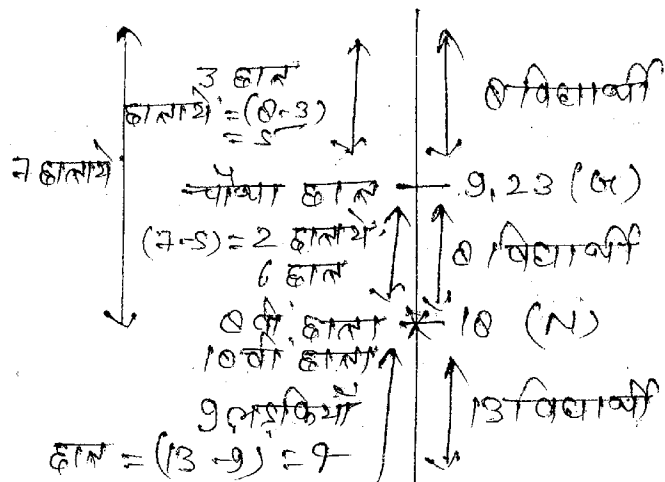 3 छात्र
छात्रायें = (8-3)
= 5
8 विद्यार्थी
7 छात्रायें
चौथा छात्र 9, 23 (G)
(7-5) = 2 छात्रायें
6 छात्र
8 विद्यार्थी
8 वीं छात्रा 18 (N)
10 वीं छात्रा
9 लड़कियाँ
13 विद्यार्थी
छात्र = (13-9) =